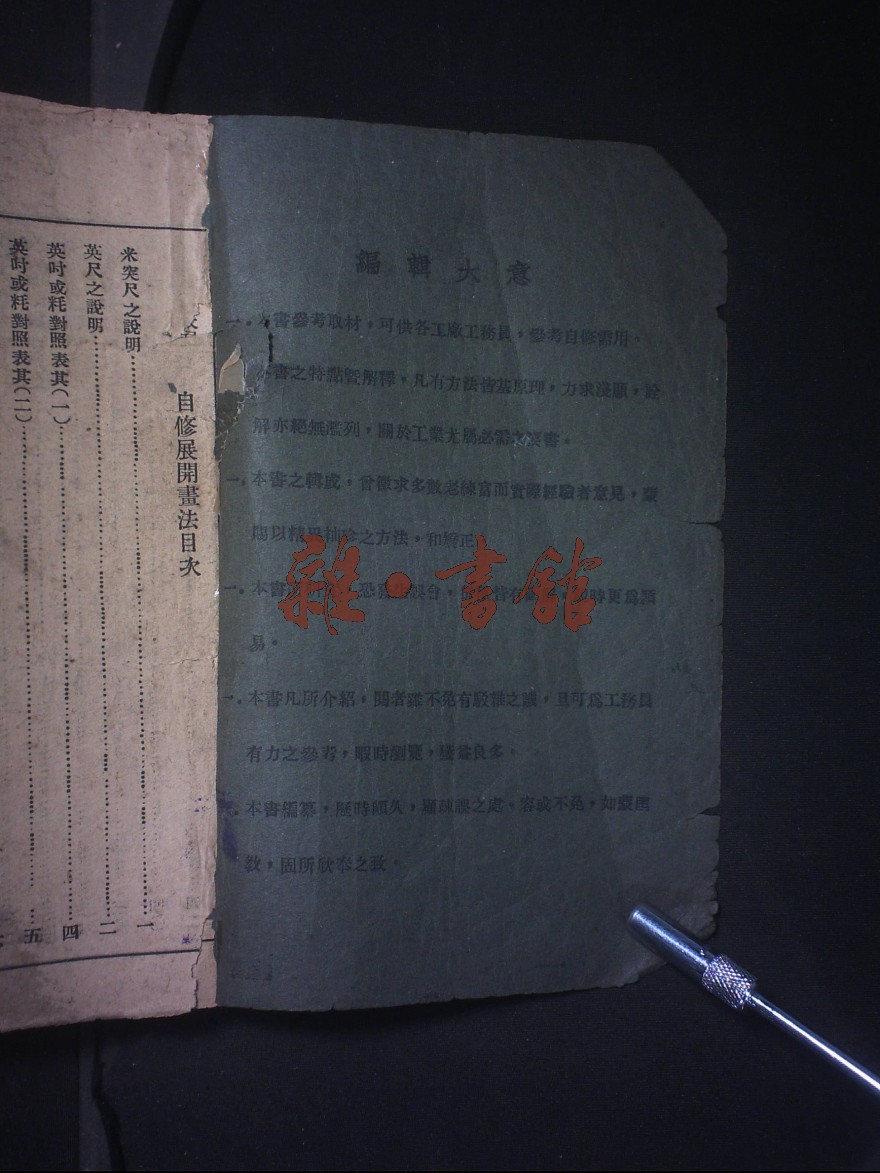 編輯大意
一．本書參考取材，可供各工廠工務員，參考自修需用。
本書之特點暨解釋，凡有方法皆基原理，力求淺顯，詮
解亦絕無濫列，關於工業尤屬必需之要書。
一．本書之輯成，曾徵求多數老練富而實際經驗者意見，
方法，和矯正
一．本書 恐 時更為
易。
一．本書凡所介紹，閱者雖不免有駁雜之議，且可為工務員
有力之參考，暇時瀏覽，獲益良多。
本書編纂，歷時頗久，誤之處，容或不免，如蒙匡
教，固所欣奉之致。
雜·書館
自修展開畫法目次
米突尺之說明 一
英尺之說明 二
英吋或粍對照表其(一) 四
英吋或粍對照表其(二) 五